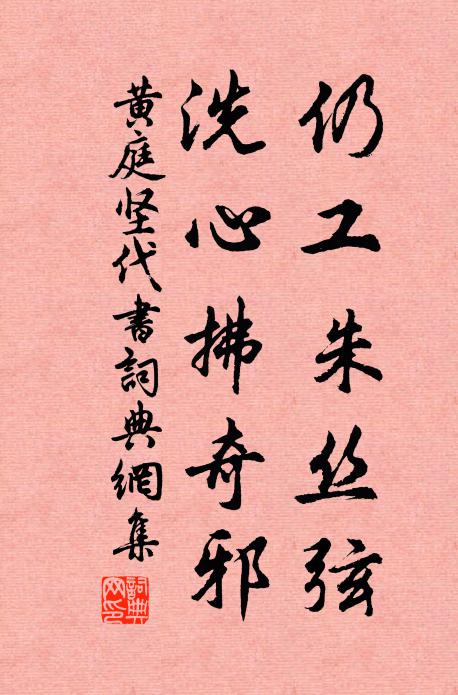 仍工朱丝弦
洗心拂奇邪
黄庭坚代书詞典網集
詞典網印